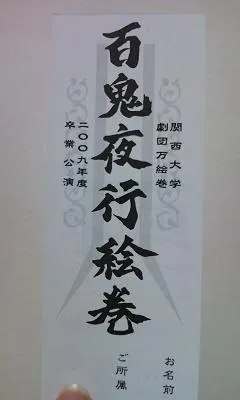 関西大学
劇団万絵巻
百鬼夜行絵巻
二〇〇九年度
卒業公演
お名前
ご所属